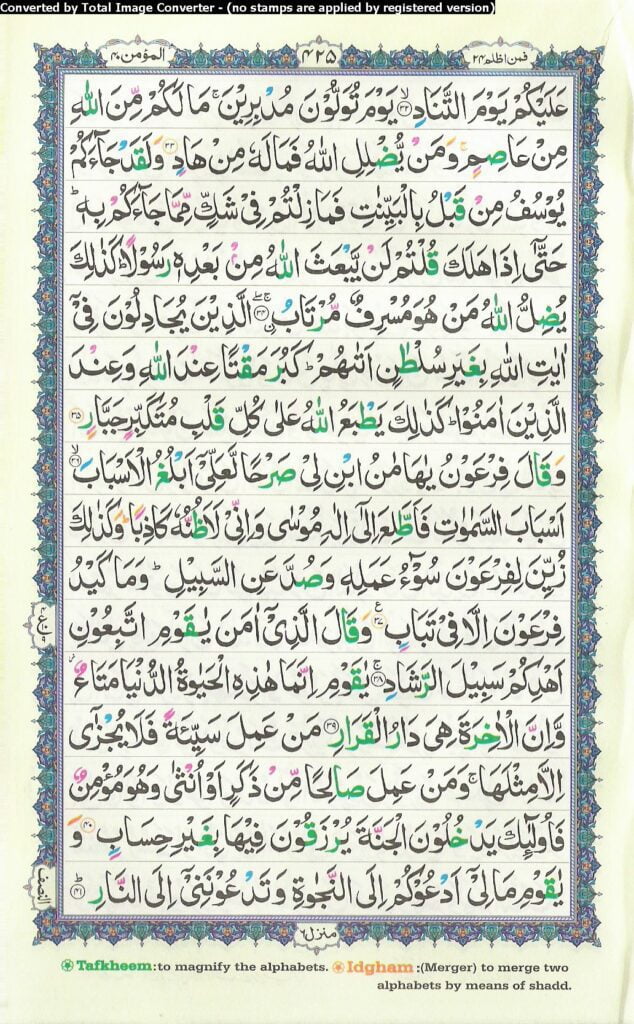 Converted by Total Image Converter - (no stamps are applied by registered version)
فمن اظلم ٢٤
٤٢٥
المؤمن ٤٠
عَلَيْكُمْ يَوْمَ التَّنَادِ ﴿٣٢﴾ۙ يَوْمَ تُوَلُّوْنَ مُدْبِرِيْنَ ۚ مَا لَكُمْ مِّنَ اللّٰهِ
مِنْ عَاصِمٍ ۚ وَمَنْ يُّضْلِلِ اللّٰهُ فَمَا لَهٗ مِنْ هَادٍ ﴿٣٣﴾ وَلَقَدْ جَآءَكُمْ
يُوْسُفُ مِنْ قَبْلُ بِالْبَيِّنٰتِ فَمَا زِلْتُمْ فِيْ شَكٍّ مِّمَّا جَآءَكُمْ بِهٖ ؕ
حَتّٰٓى اِذَا هَلَكَ قُلْتُمْ لَنْ يَّبْعَثَ اللّٰهُ مِنْۢ بَعْدِهٖ رَسُوْلًا ؕ كَذٰلِكَ
يُضِلُّ اللّٰهُ مَنْ هُوَ مُسْرِفٌ مُّرْتَابُ ﴿٣٤﴾ۚۖ ۨالَّذِيْنَ يُجَادِلُوْنَ فِيْٓ
اٰيٰتِ اللّٰهِ بِغَيْرِ سُلْطٰنٍ اَتٰىهُمْ ؕ كَبُرَ مَقْتًا عِنْدَ اللّٰهِ وَعِنْدَ
الَّذِيْنَ اٰمَنُوْا ؕ كَذٰلِكَ يَطْبَعُ اللّٰهُ عَلٰى كُلِّ قَلْبِ مُتَكَبِّرٍ جَبَّارٍ ﴿٣٥﴾
وَقَالَ فِرْعَوْنُ يٰهَامٰنُ ابْنِ لِيْ صَرْحًا لَّعَلِّيْٓ اَبْلُغُ الْاَسْبَابَ ﴿٣٦﴾ۙ
اَسْبَابَ السَّمٰوٰتِ فَاَطَّلِعَ اِلٰٓى اِلٰهِ مُوْسٰى وَاِنِّيْ لَاَظُنُّهٗ كَاذِبًا ؕ وَكَذٰلِكَ
زُيِّنَ لِفِرْعَوْنَ سُوْٓءُ عَمَلِهٖ وَصُدَّ عَنِ السَّبِيْلِ ؕ وَمَا كَيْدُ
فِرْعَوْنَ اِلَّا فِيْ تَبَابٍ ﴿٣٧﴾ وَقَالَ الَّذِيْٓ اٰمَنَ يٰقَوْمِ اتَّبِعُوْنِ
اَهْدِكُمْ سَبِيْلَ الرَّشَادِ ﴿٣٨﴾ۚ يٰقَوْمِ اِنَّمَا هٰذِهِ الْحَيٰوةُ الدُّنْيَا مَتَاعٌ ؗ
وَّاِنَّ الْاٰخِرَةَ هِيَ دَارُ الْقَرَارِ ﴿٣٩﴾ مَنْ عَمِلَ سَيِّئَةً فَلَا يُجْزٰٓى
اِلَّا مِثْلَهَا ۚ وَمَنْ عَمِلَ صَالِحًا مِّنْ ذَكَرٍ اَوْ اُنْثٰى وَهُوَ مُؤْمِنٌ
فَاُولٰٓئِكَ يَدْخُلُوْنَ الْجَنَّةَ يُرْزَقُوْنَ فِيْهَا بِغَيْرِ حِسَابٍ ﴿٤٠﴾ وَ
يٰقَوْمِ مَا لِيْٓ اَدْعُوْكُمْ اِلَى النَّجٰوةِ وَتَدْعُوْنَنِيْٓ اِلَى النَّارِ ﴿٤١﴾ؕ
منزل ٦
Tafkheem:to magnify the alphabets. Idgham :(Merger) to merge two
alphabets by means of shadd.